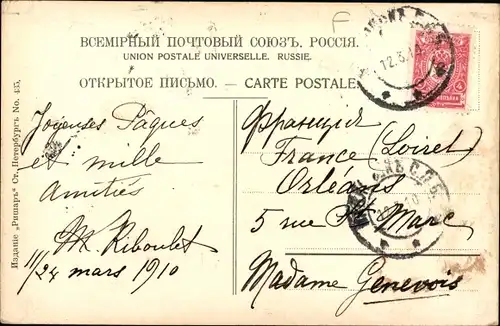 F
ВСЕМІРНЫЙ ПОЧТОВЫЙ СОЮЗЪ. РОССІЯ.
UNION POSTALE UNIVERSELLE. RUSSIE.
ОТКРЫТОЕ ПИСЬМО. — CARTE POSTALE
12.3.
Joyeuses Pâques
et mille
amitiés
M Riboulet
11/24 mars 1910
Франція
France (Loiret)
Orléans
5 rue St Marc
Madame Genevois
Изданіе „Ришаръ“ Ст.-Петербургъ No. 435.